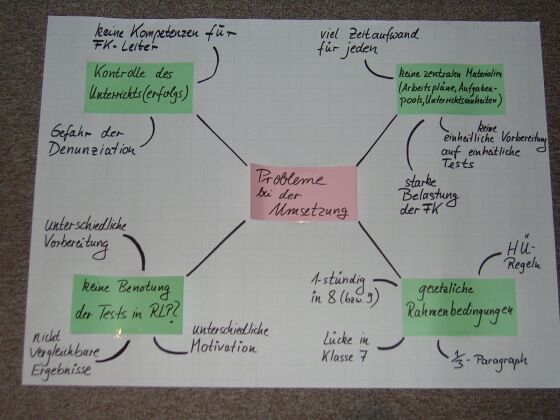 keine Kompetenzen für
FK-Leiter
Kontrolle des
Unterrichts(erfolgs)
Gefahr der
Denunziation
viel Zeitaufwand
für jeden
keine zentralen Materialien
(Arbeitspläne, Aufgaben-
pools, Unterrichtseinheiten)
keine
einheitliche Vorbereitung
auf einheitliche
Tests
starke
Belastung
der FK
Probleme
bei der
Umsetzung
unterschiedliche
Vorbereitung
keine Benotung
der Tests in RLP?
nicht
Vergleichbare
Ergebnisse
unterschiedliche
Motivation
1-stündig
in 8 (bzw. 9)
gesetzliche
Rahmenbedingungen
HÜ-
Regeln
Lücke in
Klasse 7
1/3-Paragraph